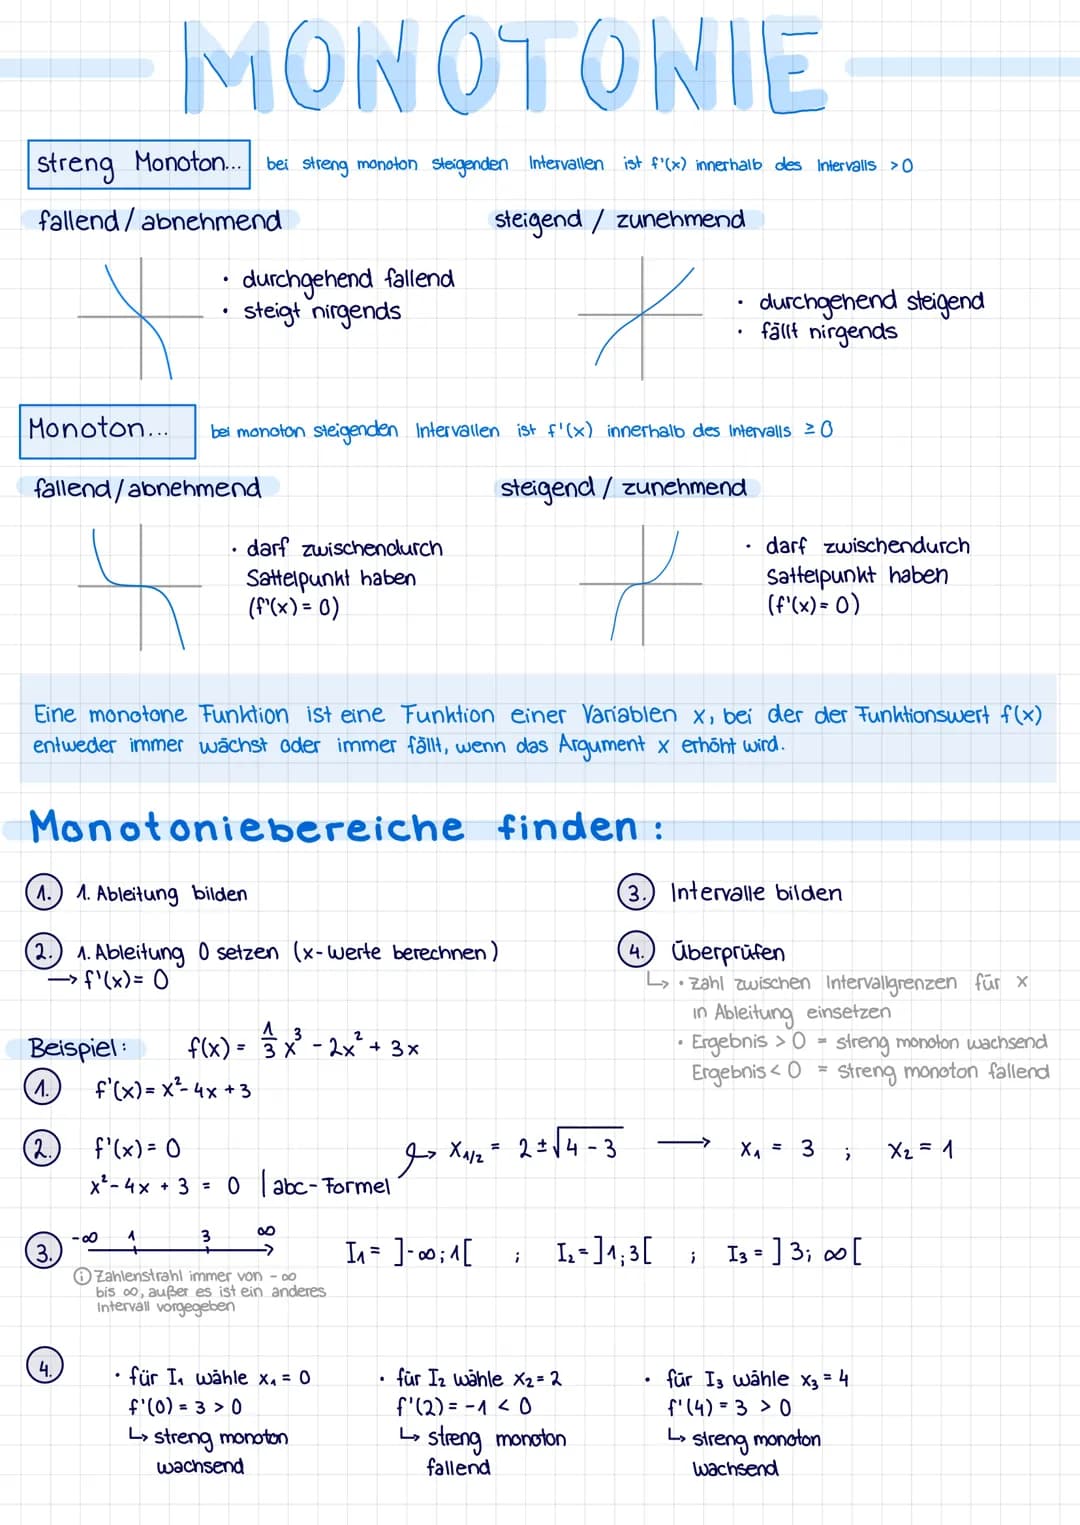 MONOTONIE
streng Monoton... bei streng monoton steigenden Intervallen ist f'(x) innerhalb des Intervalls > 0
fallend / abnehmend
steigend / zunehmend
• durchgehend fallend
• steigt nirgends
• durchgehend steigend
• fällt nirgends
Monoton... bei monoton steigenden Intervallen ist f'(x) innerhalb des Intervalls ≥ 0
fallend / abnehmend
steigend / zunehmend
• darf zwischendurch
Sattelpunkt haben
(f'(x) = 0)
• darf zwischendurch
Sattelpunkt haben
(f'(x) = 0)
Eine monotone Funktion ist eine Funktion einer Variablen x, bei der der Funktionswert f(x)
entweder immer wächst oder immer fällt, wenn das Argument x erhöht wird.
Monotoniebereiche finden:
1. 1. Ableitung bilden
2. 1. Ableitung 0 setzen (x-Werte berechnen)
→ f'(x) = 0
3. Intervalle bilden
4. Überprüfen
↳ • Zahl zwischen Intervallgrenzen für x
in Ableitung einsetzen
• Ergebnis > 0 = streng monoton wachsend
Ergebnis < 0 = streng monoton fallend
Beispiel: f(x) = 1/3 x³ - 2x² + 3x
1. f'(x) = x² - 4x + 3
2. f'(x) = 0
x² - 4x + 3 = 0 | abc-Formel
→ x₁/₂ = 2 ± √4 - 3 → x₁ = 3 ; x₂ = 1
3. -∞ 1 3 ∞
I₁ = ]-∞; 1[ ; I₂ = ]1; 3[ ; I₃ = ]3; ∞[
i Zahlenstrahl immer von -∞
bis ∞, außer es ist ein anderes
Intervall vorgegeben
4.
• für I₁ wähle x₁ = 0
f'(0) = 3 > 0
↳ streng monoton
wachsend
• für I₂ wähle x₂ = 2
f'(2) = -1 < 0
↳ streng monoton
fallend
• für I₃ wähle x₃ = 4
f'(4) = 3 > 0
↳ streng monoton
wachsend